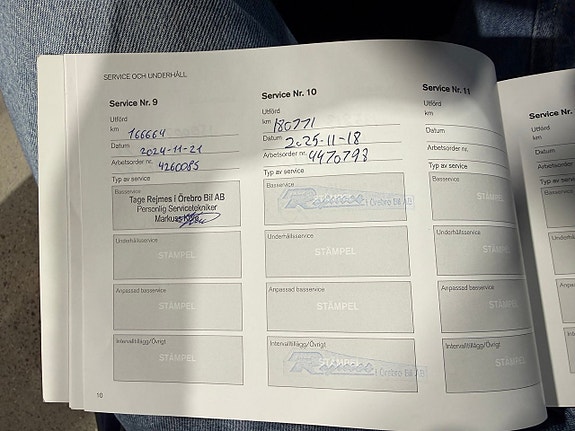 SERVICE OCH UNDERHÅLL
Service Nr. 9
Utförd
km 166664
Datum 2024-11-21
Arbetsorder nr. 4260085
Typ av service
Basservice
Tage Rejmes I Örebro Bil AB
Personlig Servicetekniker
Markus
Underhållsservice
STÄMPEL
Anpassad basservice
STÄMPEL
Intervalltillägg/Övrigt
STÄMPEL
10
Service Nr. 10
Utförd
km 180771
Datum 2025-11-18
Arbetsorder nr. 4470798
Typ av service
Basservice
Rejmes I Örebro Bil AB
Underhållsservice
STÄMPEL
Anpassad basservice
STÄMPEL
Intervalltillägg/Övrigt
STÄMPEL
Rejmes I Örebro Bil AB
Service Nr. 11
Utförd
km
Datum
Arbetsorder nr.
Typ av service
Basservice
STÄMPEL
Underhållsservice
STÄMPEL
Anpassad basservice
STÄMPEL
Intervalltillägg/Övrigt
STÄMPEL
Service Nr.
Utförd
km
Datum
Arbetsorder nr.
Typ av service
Basservice